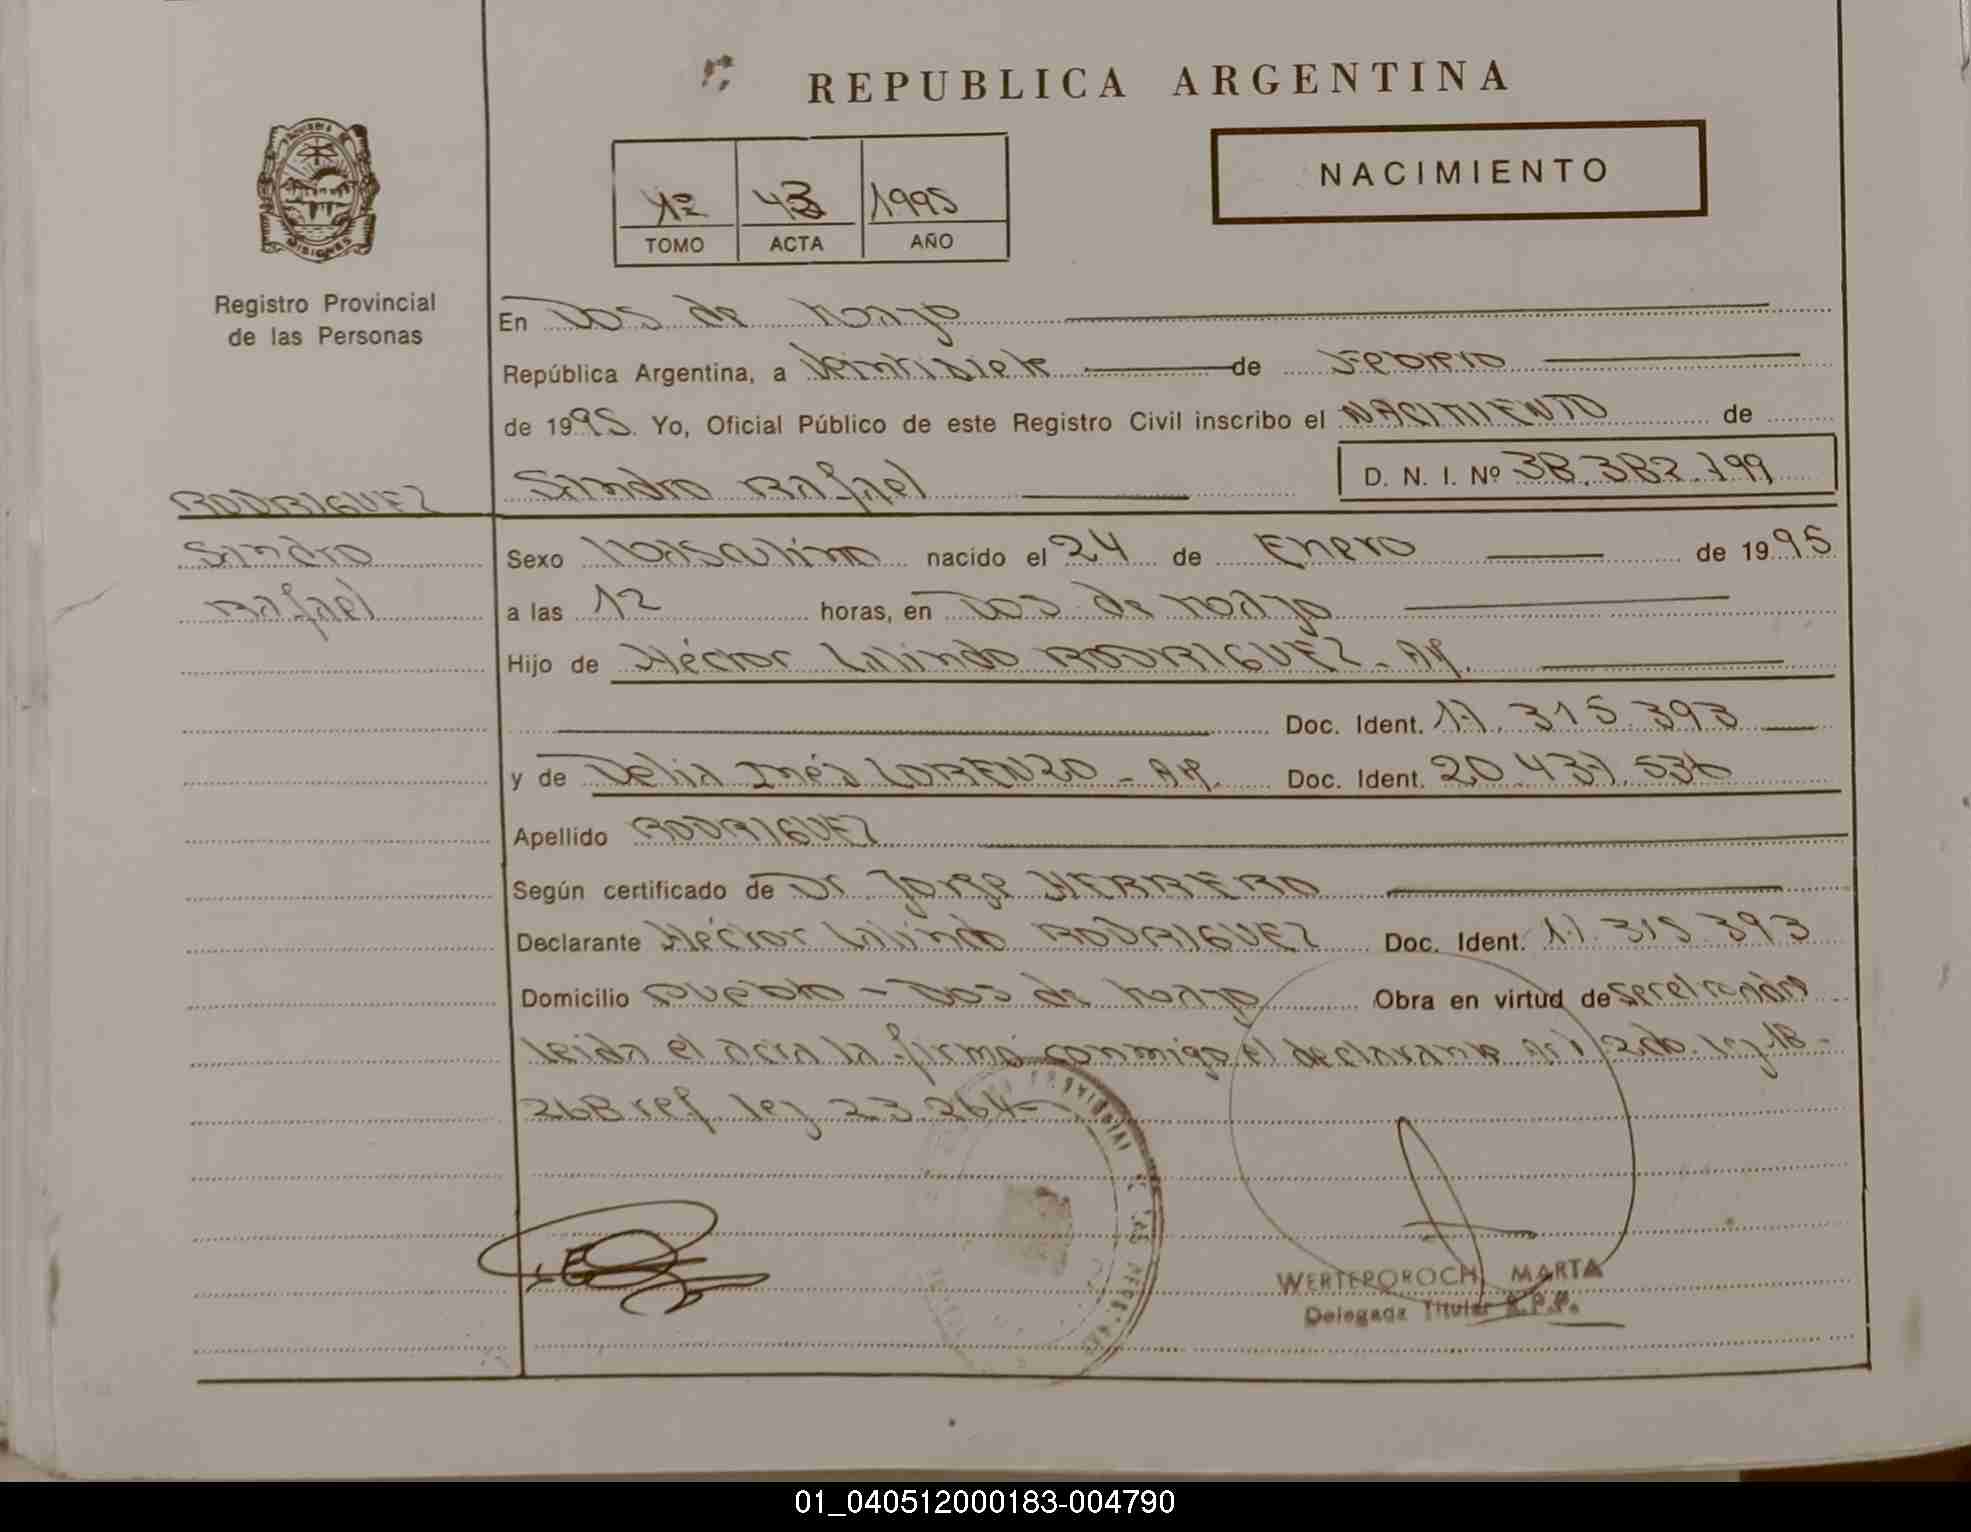 REPUBLICA ARGENTINA
NACIMIENTO
1º 43 1995
TOMO ACTA AÑO
MISIONES
Registro Provincial
de las Personas
En Dos de Mayo
República Argentina, a Veintisiete de Febrero
de 1995. Yo, Oficial Público de este Registro Civil inscribo el NACIMIENTO de
RODRIGUEZ
Sandro Rafael
D. N. I. Nº 38.382.799
Sandro
Rafael
Sexo Masculino nacido el 24 de Enero de 1995
a las 12 horas, en Dos de Mayo
Hijo de Héctor RODRIGUEZ - Ar.
Doc. Ident. 17.315.393
y de Delia Inés LORENZO - Ar. Doc. Ident. 20.437.536
Apellido RODRIGUEZ
Según certificado de Dr Jorge HERRERO
Declarante Héctor RODRIGUEZ Doc. Ident. 17.315.393
Domicilio Pueblo - Dos de Mayo Obra en virtud de
leida el acta la firma conmigo el declarante Art 2do. ley 18-
268 ref ley 23.264-
WERTEPOROCH MARTA
Delegada Titular R.P.P.
01_040512000183-004790